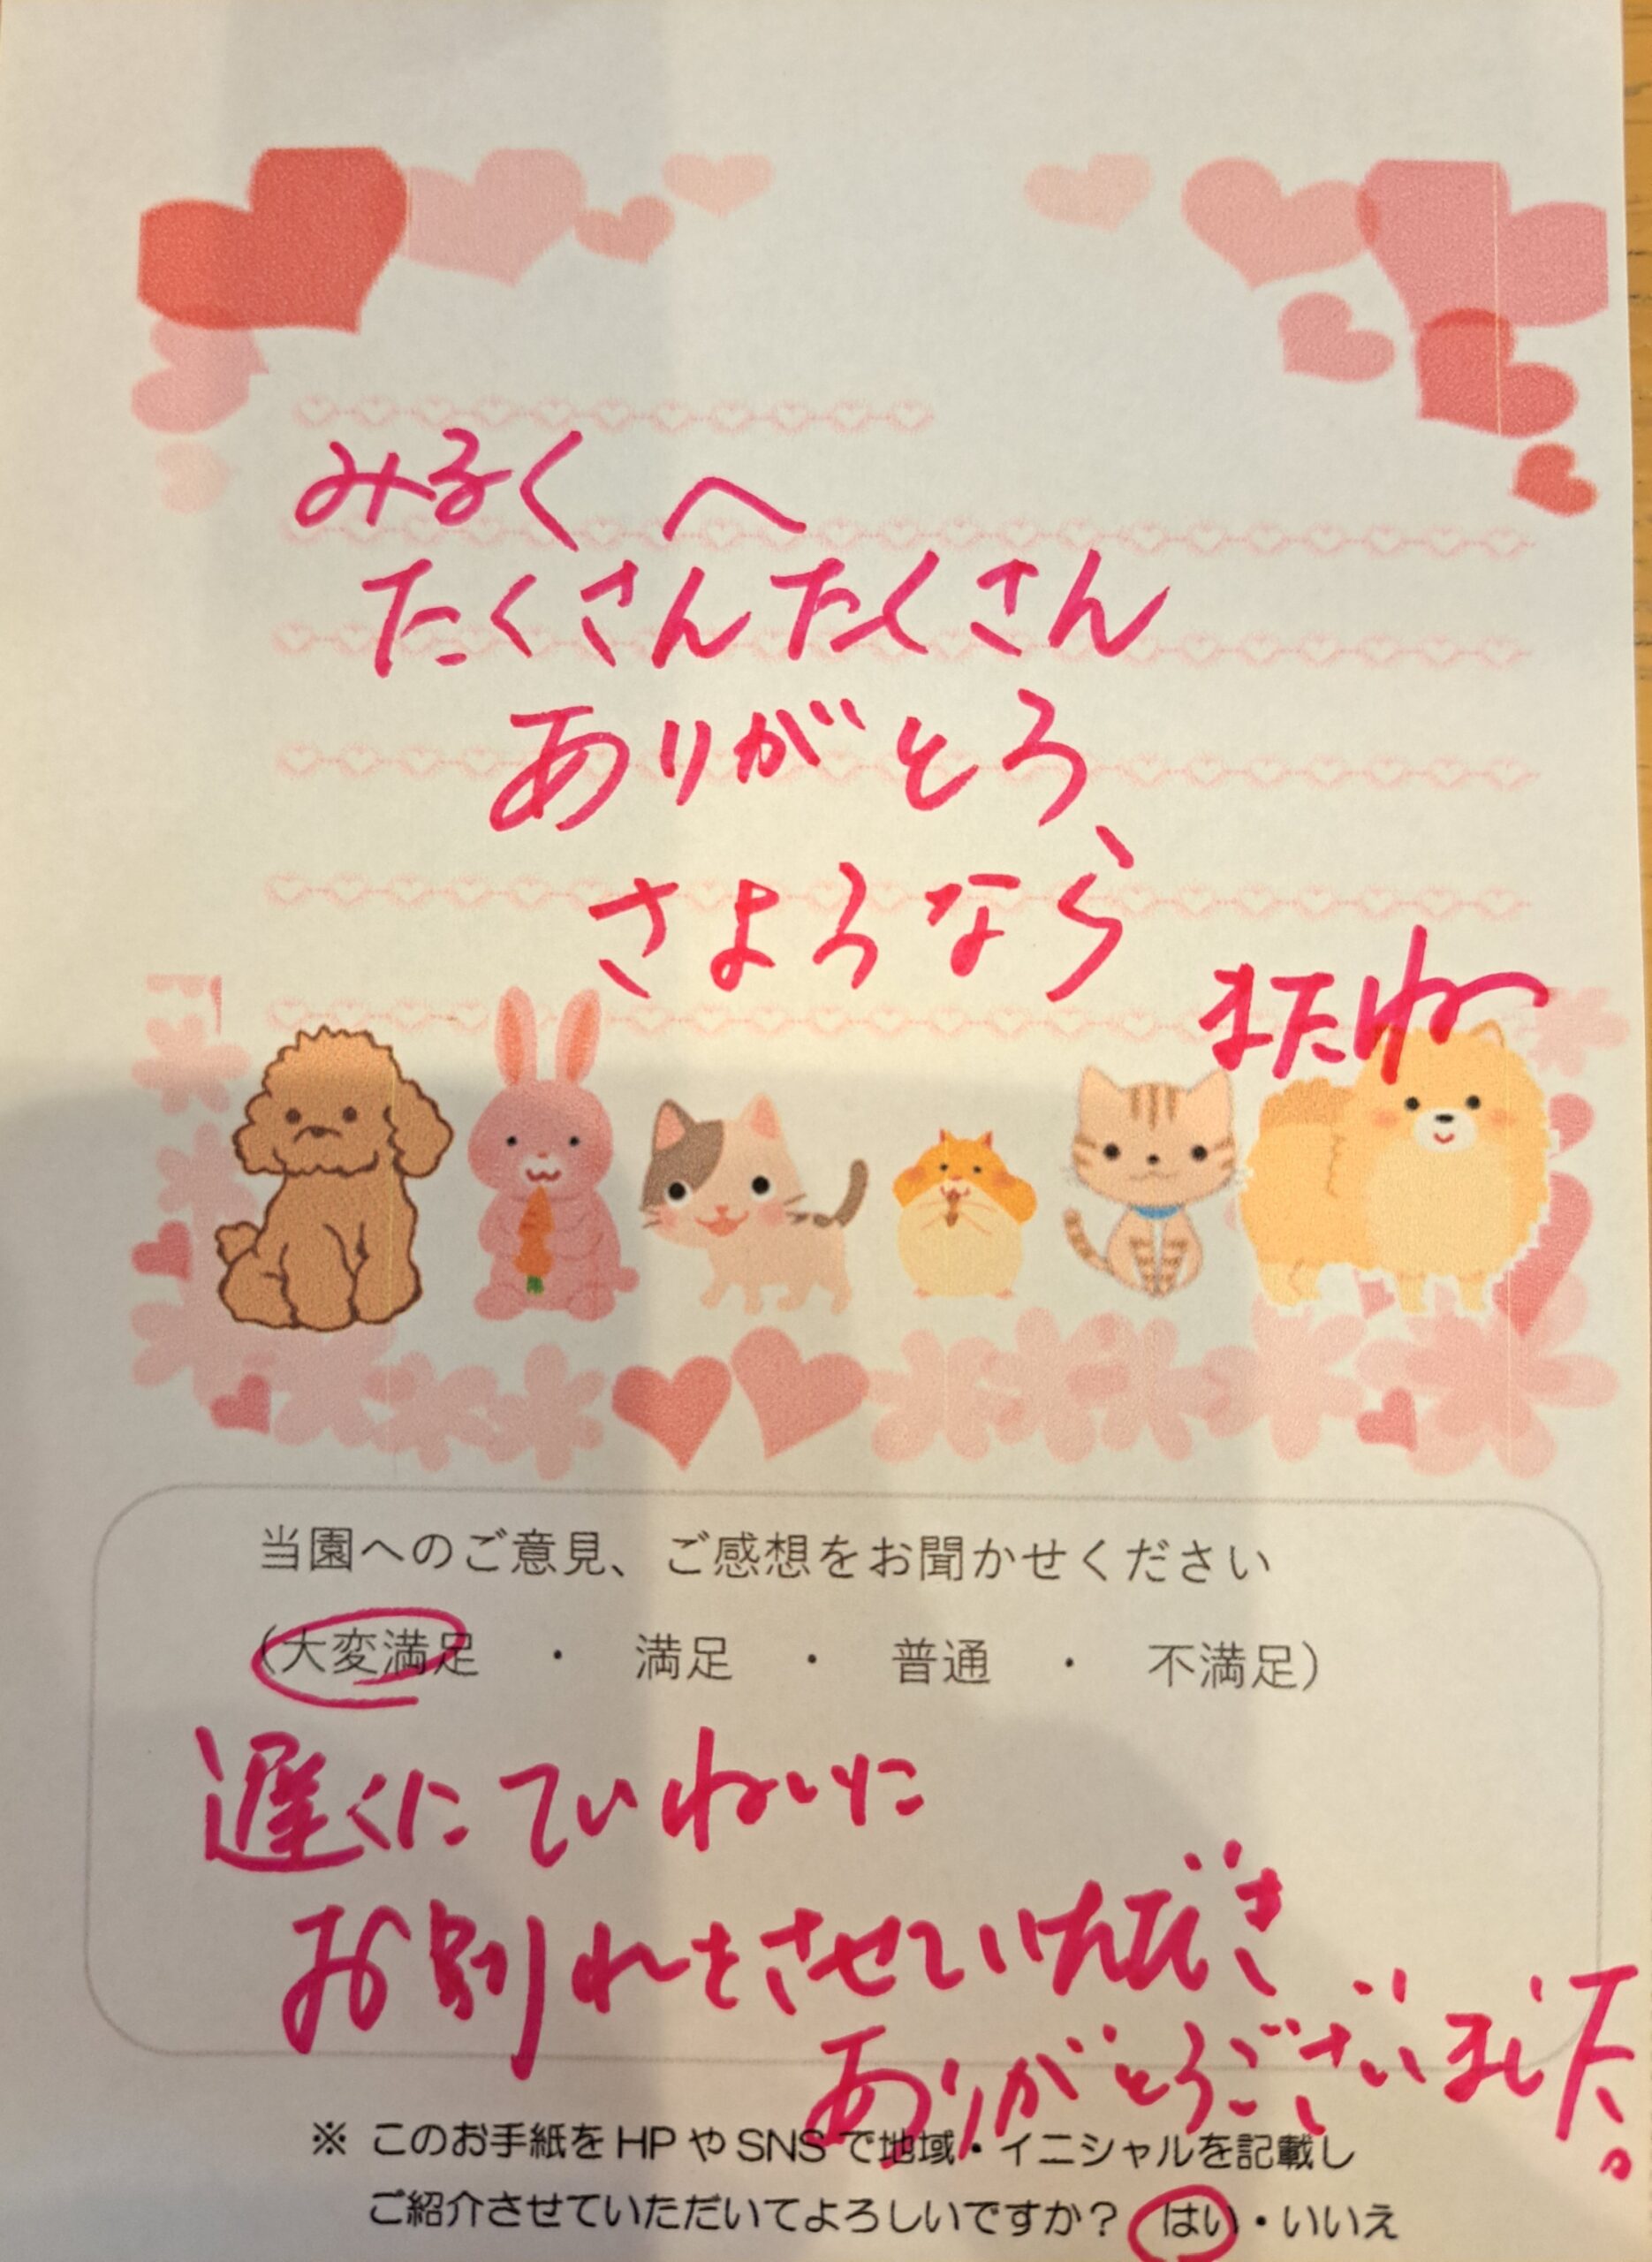 みるくへ
たくさんたくさん
ありがとう、
さようなら
またね
当園へのご意見、ご感想をお聞かせください
(大変満足 ・ 満足 ・ 普通 ・ 不満足)
遅くにていねいに
お別れをさせていただき
ありがとうございました。
※ このお手紙をHPやSNSで地域・イニシャルを記載し
ご紹介させていただいてよろしいですか? はい・いいえ